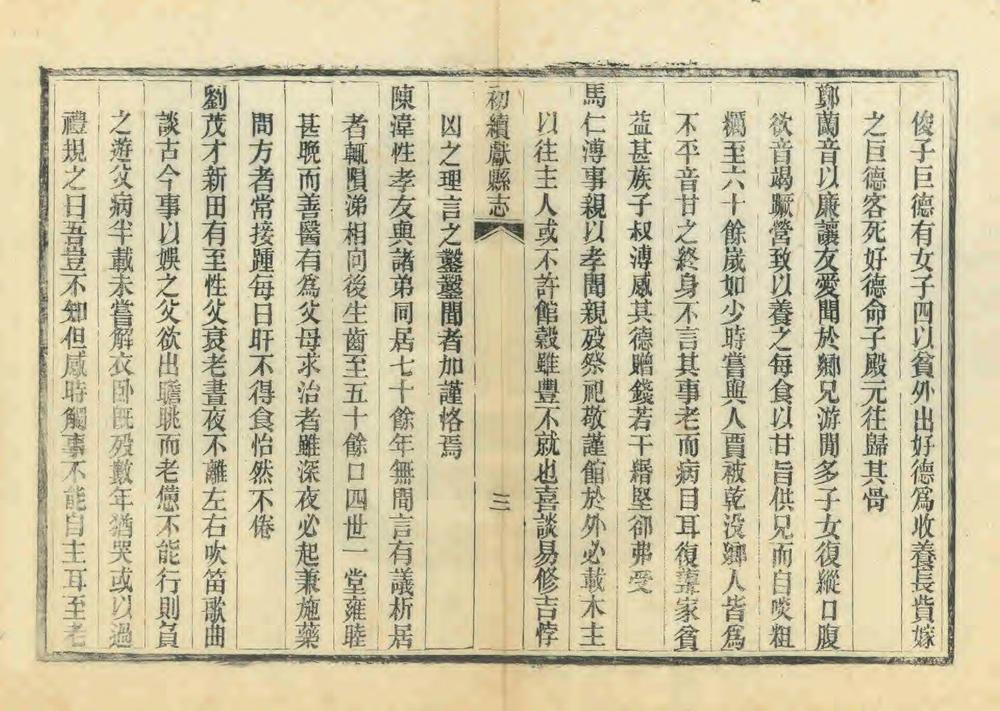 俊子巨德有女子四以貧外出好德爲收養長貲嫁
之巨德客死好德命子殿元往歸其骨
鄭蘭音以廉讓友愛聞於鄉兄游閒多子女復縱口腹
欲音竭蹶營致以養之每食以甘旨供兄而自啖粗
糲至六十餘歲如少時嘗與人賈被乾没鄉人皆爲
不平音甘之終身不言其事老而病目耳復聾家貧
益甚族子叔溥感其德贈錢若干緡堅卻弗受
馬仁溥事親以孝聞親殁祭祀敬謹館於外必載木主
以往主人或不許館穀雖豐不就也喜談易修吉悖
初續獻縣志
三
凶之理言之鑿鑿聞者加謹恪焉
陳湋性孝友與諸弟同居七十餘年無間言有議析居
者輒隕涕相向後生齒至五十餘口四世一堂雍睦
甚晚而善醫有爲父母求治者雖深夜必起兼施藥
問方者常接踵每日旰不得食怡然不倦
劉茂才新田有至性父衰老晝夜不離左右吹笛歌曲
談古今事以娛之父欲出瞻眺而老憊不能行則負
之遊父病半載未嘗解衣卧既殁數年猶哭或以過
禮規之曰吾豈不知但感時觸事不能自主耳至老